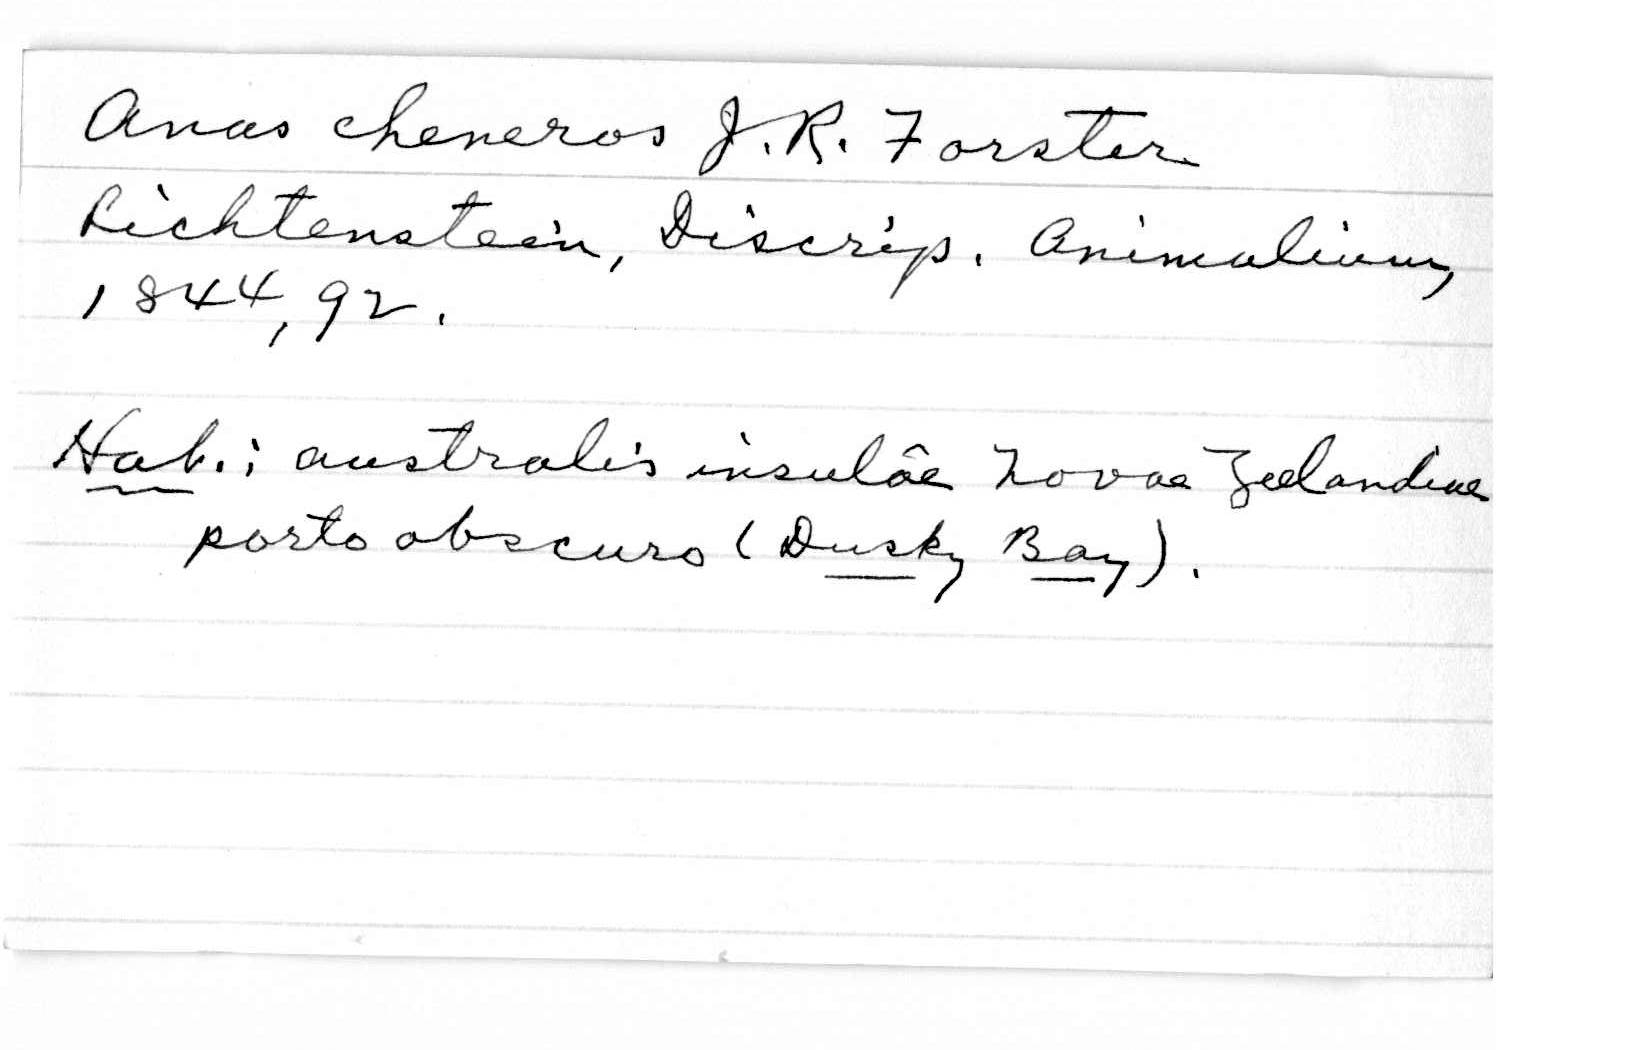 Anas cheneros J. R. Forster
Lichtenstein, Discrip. Animalium,
1844, 92.
Hab.: australis insulâe Novae Zeelandiae
porto obscuro (Dusky Bay).